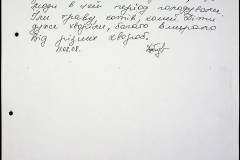 Люди в цей період голодували
Їли траву, котів, коней, діти
дуже хворіли, багато вмирало
від різних хвороб.